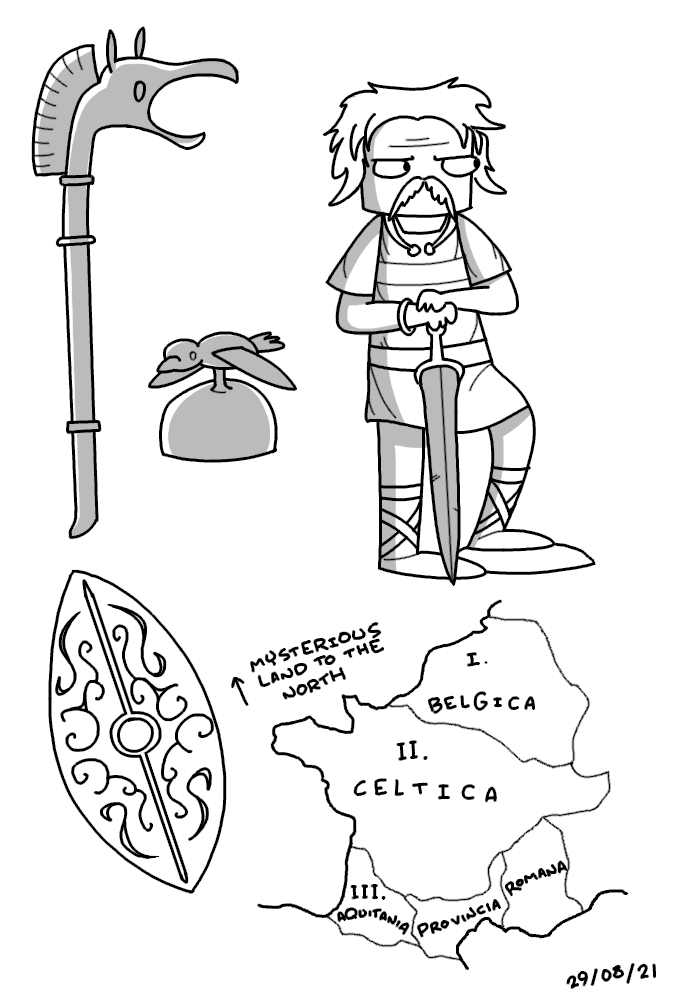 ↑ MYSTERIOUS
LAND TO THE
NORTH
I.
BELGICA
II.
CELTICA
III.
AQUITANIA
PROVINCIA
ROMANA
29/08/21